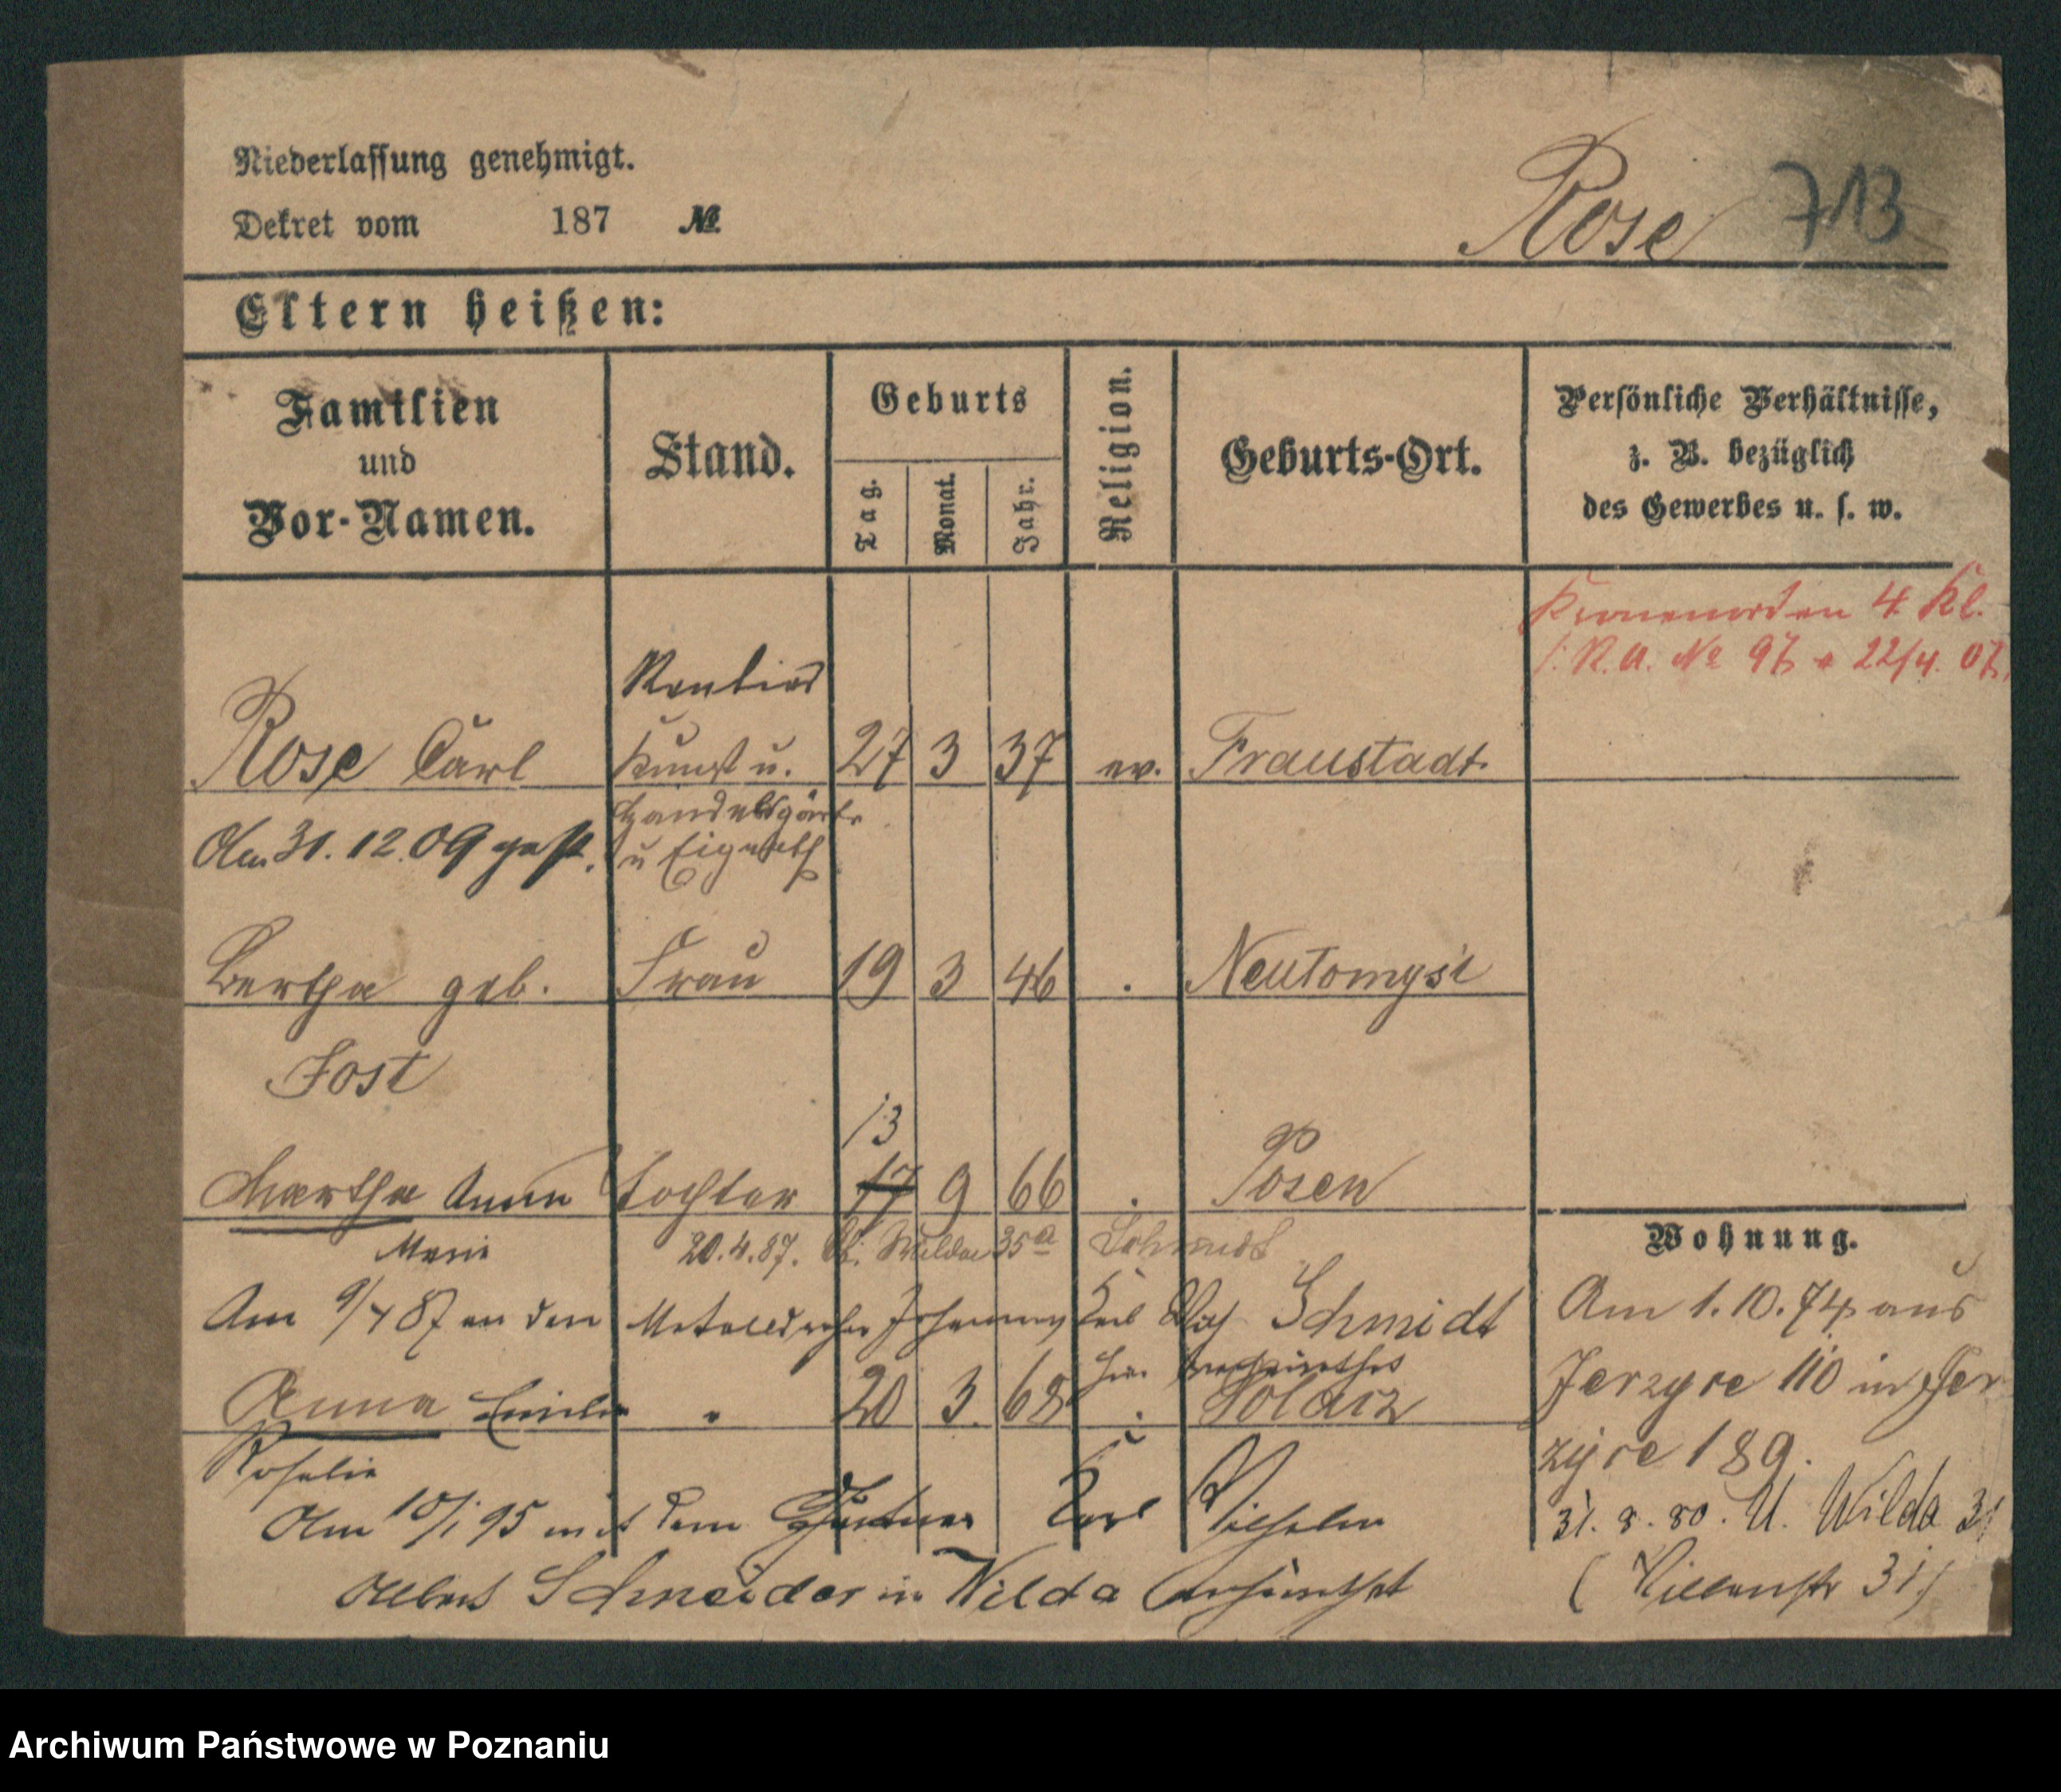 Niederlassung genehmigt.
Dekret vom 187 №
Rose 713
Eltern heißen:
Familien und Vor-Namen.
Stand.
Geburts
Tag.
Monat.
Jahr.
Religion.
Geburts-Ort.
Persönliche Verhältnisse,
z. B. bezüglich
des Gewerbes u. s. w.
Kronenorden 4 Kl.
R.A. № 97 22/4. 07.
Rentier
Rose Carl Kunst u. 27 3 37 ev. Fraustadt
Handelsgärtn
u Eigenth
Am 31. 12. 09 gest.
Bertha geb. Frau 19 3 46 . Neutomysl
Jost
13
Martha Anna Tochter 17 9 66 . Posen
Marie 20.4.87. Wilda 35a Schmidt
Am 9/4 87 an den Metalldreher Johannes Schmidt
hier verheirathet
Anna Emilie " 20 3. 68 . Solacz
Rosalie
Am 10/1 95 mit dem Gärtner Karl Wilhelm
Albert Schneider in Wilda verheirathet
Wohnung.
Am 1. 10. 74 aus
Jerzyce 110 in Jer
zyce 189.
31. 8. 80. U. Wilda 31
(Villenstr 31)
Archiwum Państwowe w Poznaniu